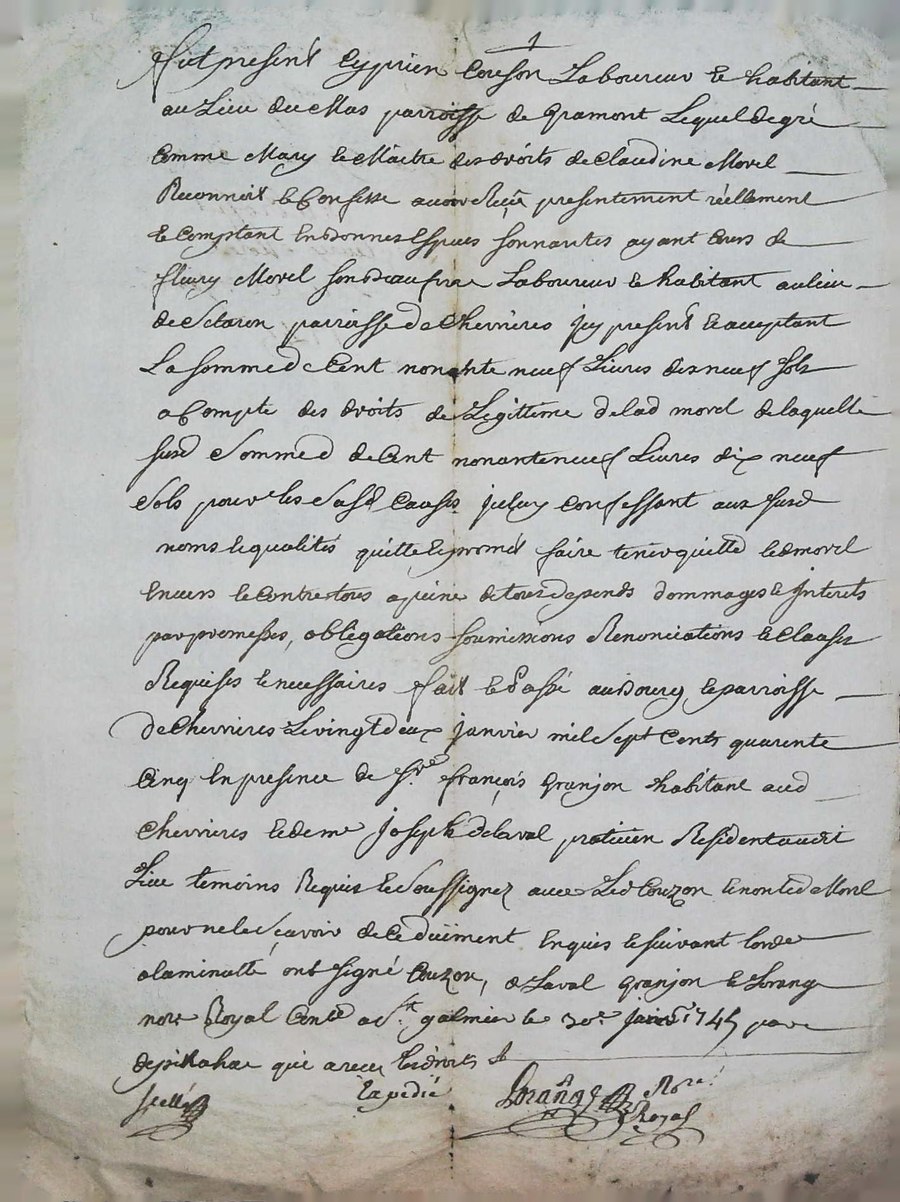 1
Fut present Cyprien Couson Laboureur et habitant
au Lieu du Mas parroisse de Gramont Lequel de gré
Comme Mary et Maitre des droits de Claudine Morel
Reconnoit et Confesse avoir Reçu presentement réellement
et Comptant en bonnes Espces sonnantes ayant Cours de
fleury Morel son beau frere Laboureur et habitant au lieu
de parroisse de Chevrieres jcy present et acceptant
La somme de Cent nonante neuf Livres dix neuf sols
a Compte des droits de Legitteme de lad morel de laquelle
susd Somme de Cent nonante neuf Livres dix neuf
sols pour les Susd Causes jceluy confessant aux susd
noms et qualités quitte et promet faire tenir quitte led morel
Envers et contre tous a peine de tous depends dommages et Interets
par promesses, obligations soumissions Renonciations et Clauses
Requises et necessaires fait et Passé au Bourg et parroisse
de Chevrieres Le vingt deux janvier mil Sept Cents quarente
Cinq En presence de Sr françois Granjon habitant aud
Chevrieres et de me Joseph delaval praticien Resident audit
Lieu temoins Requis et Soussignez avec Led Couzon et non led Morel
pour ne le Sçavoir de Ce duëment Enquis et suivant lorde
a la minutte ont signé Couzon, de Laval Granjon et Lorang
notre Royal a St galmier le 30e janvr 1745 par
qui a receu les droits
scellé Expedié Lorange Nore
Royal